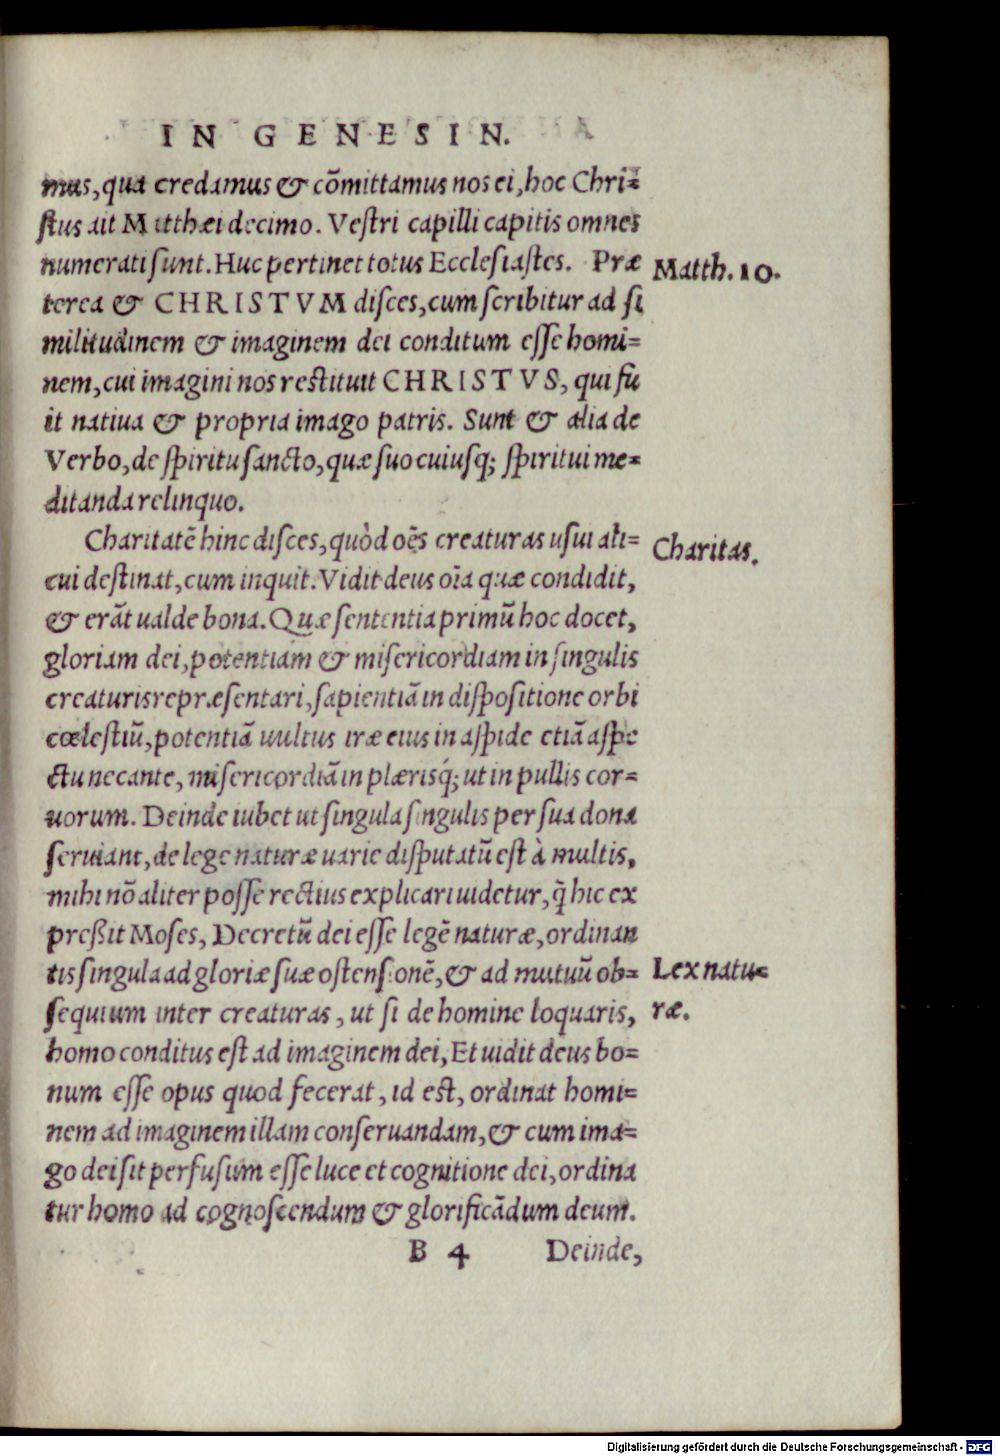 IN GENESIN.
mus, qua credamus & cõmittamus nos ei, hoc Chri=
stus ait Matthæi decimo. Vestri capilli capitis omnes
numerati sunt. Huc pertinet totus Ecclesiastes. Præ
terea & CHRISTVM disces, cum scribitur ad si
militudinem & imaginem dei conditum esse homi=
nem, cui imagini nos restituit CHRISTVS, qui fu
it natiua & propria imago patris. Sunt & alia de
Verbo, de spiritu sancto, quæ suo cuiusq; spiritui me=
ditanda relinquo.
Matth. 10.
Charitatẽ hinc disces, quòd oẽs creaturas usui ali=
cui destinat, cum inquit. Vidit deus oĩa quæ condidit,
& erãt ualde bona. Quæ sententia primũ hoc docet,
gloriam dei, potentiam & misericordiam in singulis
creaturis repræsentari, sapientiã in dispositione orbi
cœlestiũ, potentiã uultus iræ eius in aspide etiã aspe
ctu necante, misericordiã in plærisq́; ut in pullis cor=
uorum. Deinde iubet ut singula singulis per sua dona
seruiant, de lege naturæ uarie disputatũ est à multis,
mihi nõ aliter posse rectius explicari uidetur, q̃ hic ex
preßit Moses, Decretũ dei esse legẽ naturæ, ordinan
tis singula ad gloriæ suæ ostensionẽ, & ad mutuũ ob=
sequium inter creaturas, ut si de homine loquaris,
homo conditus est ad imaginem dei, Et uidit deus bo=
num esse opus quod fecerat, id est, ordinat homi=
nem ad imaginem illam conseruandam, & cum ima=
go dei sit perfusum esse luce et cognitione dei, ordina
tur homo ad cognoscendum & glorificãdum deum.
Charitas.
Lex natu=
ræ.
B 4 Deinde,
Digitalisierung gefördert durch die Deutsche Forschungsgemeinschaft - DFG